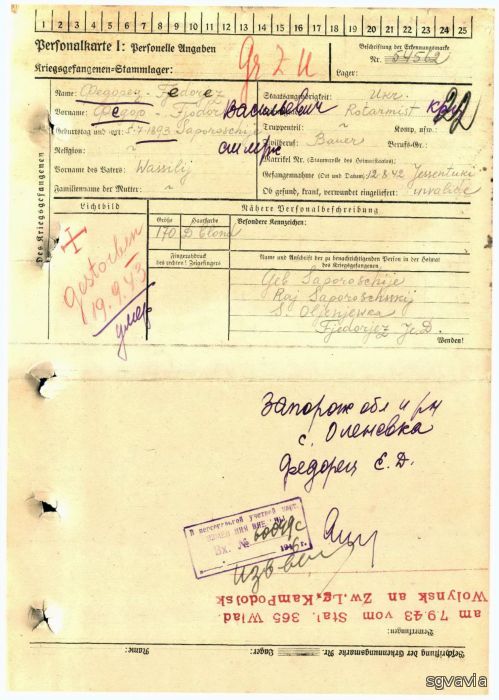 1 2 3 4 5 6 7 8 9 10 11 12 13 14 15 16 17 18 19 20 21 22 23 24 25
Personalkarte I: Personelle Angaben
Kriegsgefangenen-Stammlager:
Gr Z U
Beschriftung der Erkennungsmarke
Nr. 54562
Lager:
Des Kriegsgefangenen
Name: Fjedorez
Staatsangehörigkeit: Ukr.
Vorname: Fjodor Васильевич
Dienstgrad: Rotarmist
22
Geburtstag und -ort: 5.7.1893 Saporoschije
Truppenteil: ~ Komp. usw.:
Religion: ~
Zivilberuf: Bauer Berufs-Gr.:
Vorname des Vaters: Wassilij
Matrikel Nr. (Stammrolle des Heimatstaates):
Gefangennahme (Ort und Datum): 12.8.42 Jessentuki
Familienname der Mutter: ~
Ob gesund, krank, verwundet eingeliefert: invalide
Lichtbild
Nähere Personalbeschreibung
Größe
Haarfarbe
Besondere Kennzeichen:
170
D. blond
Fingerabdruck
des rechten! Zeigefingers
Name und Anschrift der zu benachrichtigenden Person in der Heimat
des Kriegsgefangenen:
Geb Saporoschije
Raj Saporoschskij
S. Olenjewka
Fjedorjez Je.D.
Wenden!
Gestorben
19.9.43
умер
Запорож обл и рн
с. Оленевка
федорец Е.Д.
К персональной учетной карт.
Вх. №
am 7.9.43 vom Stal. 365 Wlad.
Wolynsk an Zw.Lg.KamPodolsk
Bemerkungen:
Beschriftung der Erkennungsmarke Nr.
Lager:
Name:
sgvavia